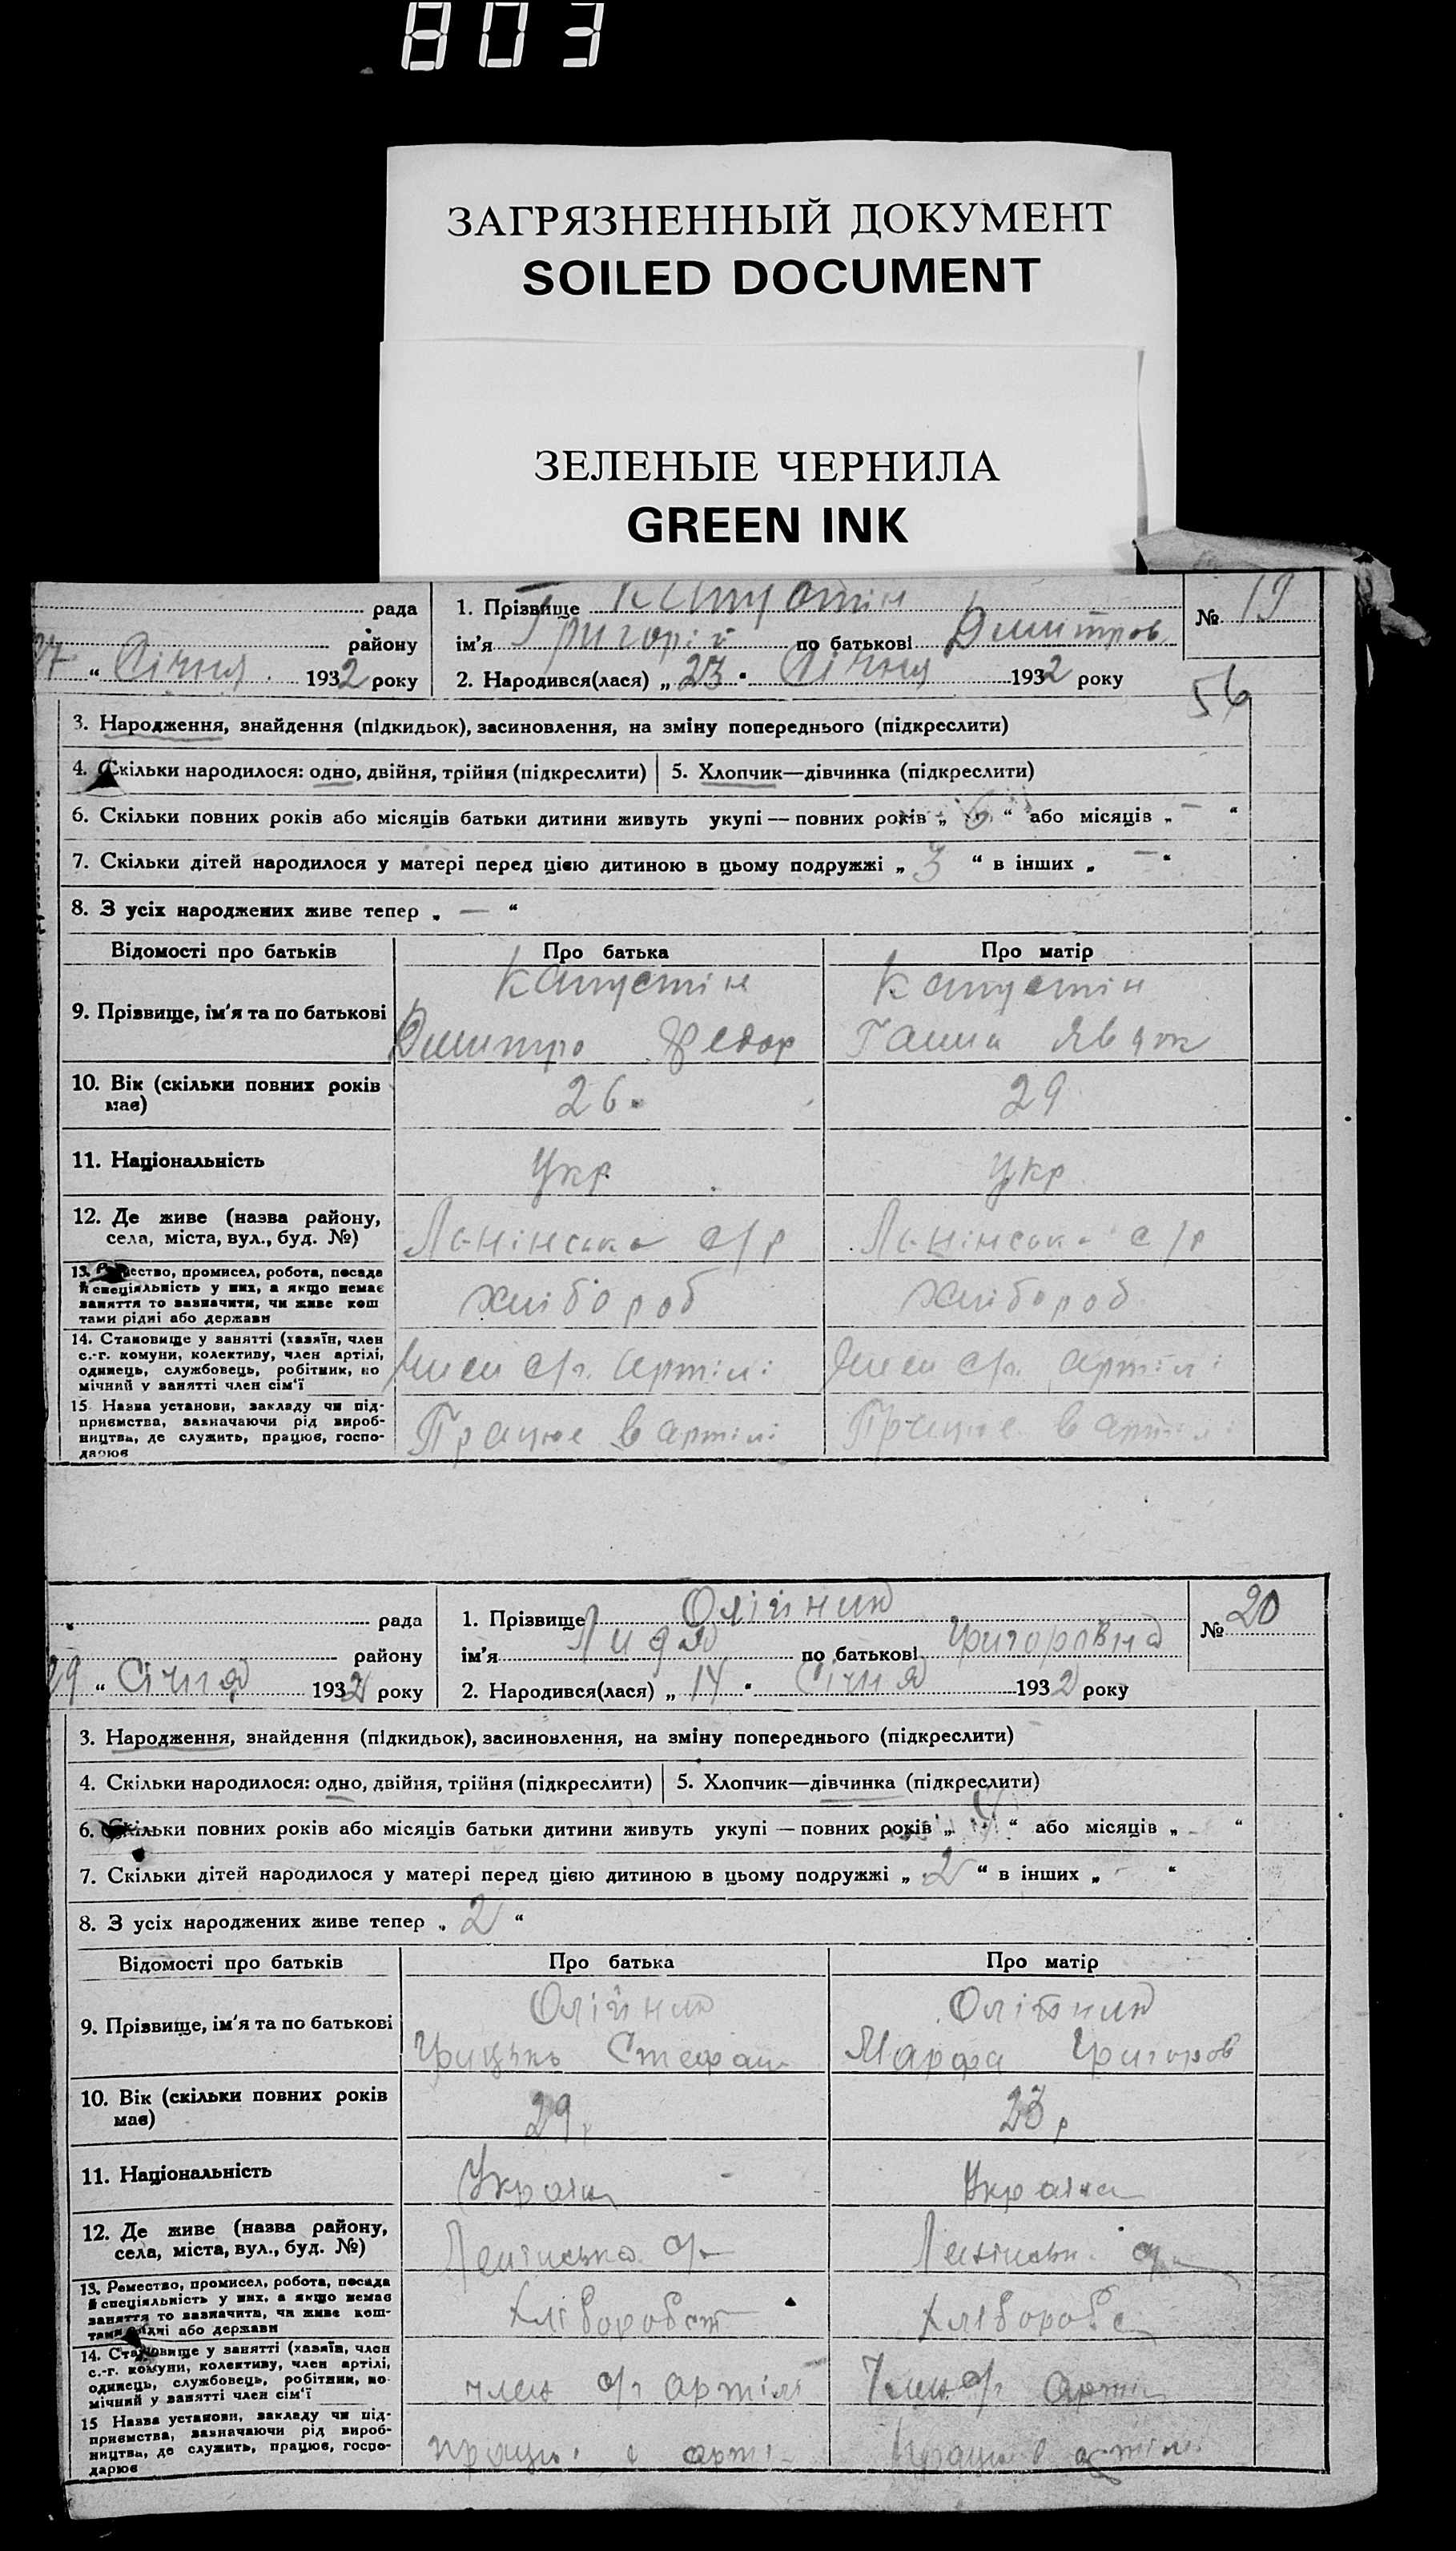 803
ЗАГРЯЗНЕННЫЙ ДОКУМЕНТ
SOILED DOCUMENT
ЗЕЛЕНЫЕ ЧЕРНИЛА
GREEN INK
рада
району
27 “ Січня 1932 року
1. Прізвище Капустін
ім'я Григорій по батькові Дмитров
2. Народився(лася) „ 23 " Січня 1932 року
№ 19
56
3. Народження, знайдення (підкидьок), засиновлення, на зміну попереднього (підкреслити)
4. Скільки народилося: одно, двійня, трійня (підкреслити) 5. Хлопчик—дівчинка (підкреслити)
6. Скільки повних років або місяців батьки дитини живуть укупі — повних років „ 6 “ або місяців „ — “
7. Скільки дітей народилося у матері перед цією дитиною в цьому подружжі „ 3 “ в інших „ — “
8. З усіх народжених живе тепер „ — “
Відомості про батьків Про батька Про матір
9. Прізвище, ім'я та по батькові
Капустін Капустін
Дмитро Федор Ганна Явдок
10. Вік (скільки повних років має) 26 29
11. Національність Укр Укр
12. Де живе (назва району,
села, міста, вул., буд. №) Ленінська с/р Ленінська с/р
13. Ремество, промисел, робота, посада
й спеціяльність у них, а якщо немає
заняття то зазначити, чи живе кош
тами рідні або держави
хлібороб хлібороб
14. Становище у занятті (хазяїн, член
с.-г. комуни, колективу, член артілі,
одинець, службовець, робітник, по
мічний у занятті член сім'ї
Член с/г. артілі Член с/г. артілі
15 Назва установи, закладу чи під-
приємства, зазначаючи рід вироб-
ництва, де служить, працює, госпо-
дарює
Працює в артілі Працює в артілі
рада
району
29 “ Січня 1932 року
1. Прізвище Олійник
ім'я Лидія по батькові Григорівна
2. Народився(лася) „ 14 " Січня 1932 року
№ 20
3. Народження, знайдення (підкидьок), засиновлення, на зміну попереднього (підкреслити)
4. Скільки народилося: одно, двійня, трійня (підкреслити) 5. Хлопчик—дівчинка (підкреслити)
6. Скільки повних років або місяців батьки дитини живуть укупі — повних років „ “ або місяців „ - “
7. Скільки дітей народилося у матері перед цією дитиною в цьому подружжі „ 2 “ в інших „ - “
8. З усіх народжених живе тепер „ 2 “
Відомості про батьків Про батька Про матір
9. Прізвище, ім'я та по батькові
Олійник Олійник
Грицько Стефан Марфа Григоров
10. Вік (скільки повних років
має) 29 р 23 р
11. Національність Україн Україна
12. Де живе (назва району,
села, міста, вул., буд. №) Ленінська Ленінськ
13. Ремество, промисел, робота, посада
й спеціяльність у них, а якщо немає
заняття то зазначити, чи живе кош-
тами рідні або держави
14. Становище у занятті (хазяїн, член
с.-г. комуни, колективу, член артілі,
одинець, службовець, робітник, по-
мічний у занятті член сім'ї
член с/г артілі Член с/г арті
15 Назва установи, закладу чи під-
приємства, зазначаючи рід вироб-
ництва, де служить, працює, госпо-
дарює